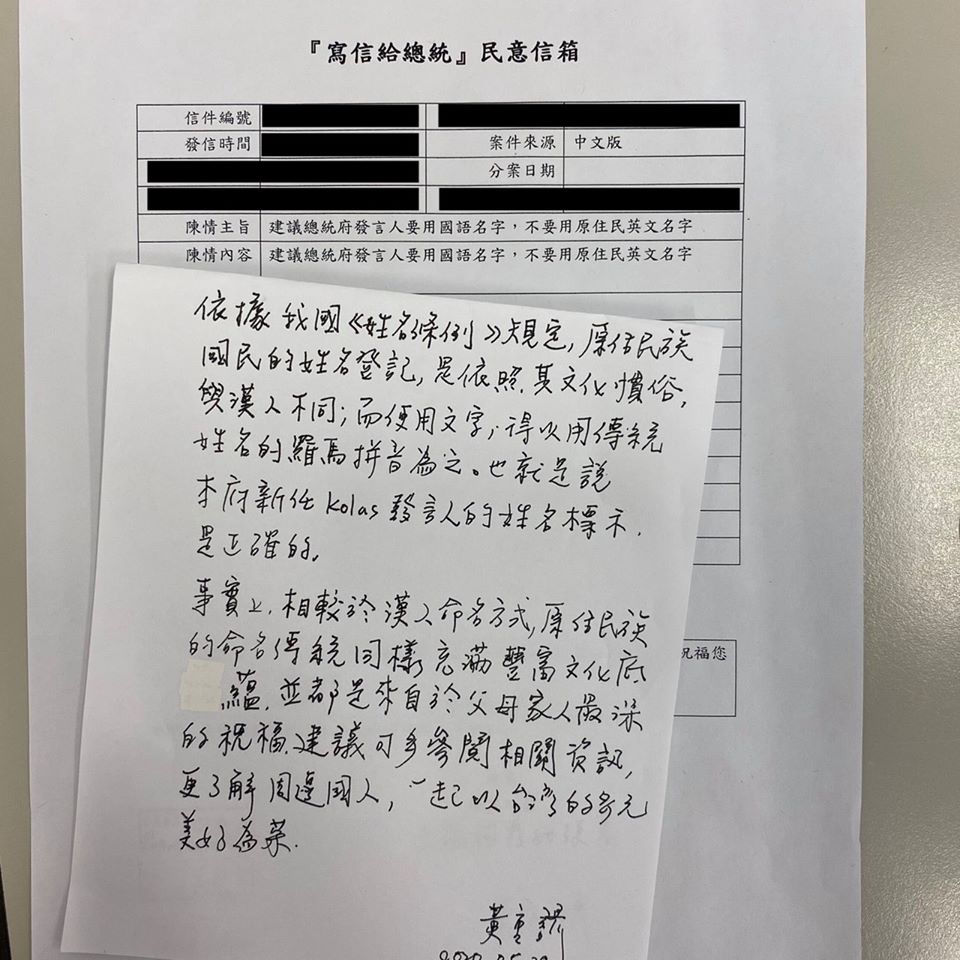 『寫信給總統』民意信箱
信件編號
發信時間
案件來源 中文版
分案日期
陳情主旨 建議總統府發言人要用國語名字，不要用原住民英文名字
陳情內容 建議總統府發言人要用國語名字，不要用原住民英文名字
依據我國《姓名條例》規定，原住民族
國民的姓名登記，是依照其文化慣俗，
與漢人不同；而使用文字，得以用傳統
姓名的羅馬拼音為之。也就是說
本府新任 Kolas 發言人的姓名標示，
是正確的。
事實上，相較於漢人命名方式，原住民族
的命名傳統同樣充滿豐富文化底
蘊，並都是來自於父母家人最深
的祝福。建議可多參閱相關資訊，
更了解周邊國人，一起以台灣的多元
美好為榮。
祝福您
黃重諺